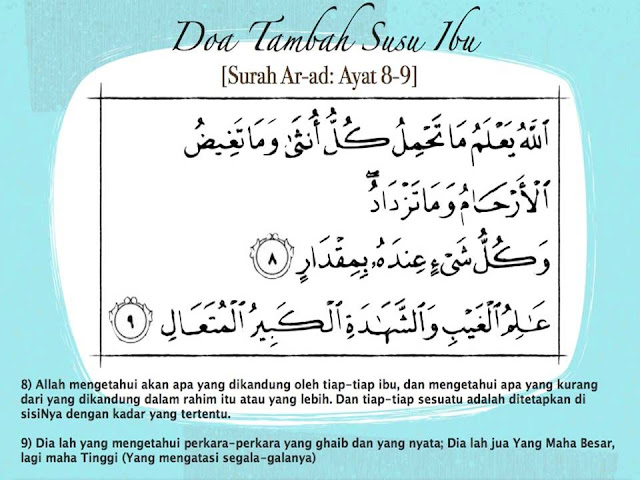 Doa Tambah Susu Ibu
[Surah Ar-ad: Ayat 8-9]
اللَّهُ يَعْلَمُ مَا تَحْمِلُ كُلُّ أُنثَىٰ وَمَا تَغِيضُ
الْأَرْحَامُ وَمَا تَزْدَادُ ۖ
وَكُلُّ شَيْءٍ عِندَهُۥ بِمِقْدَارٍ ٨
عَٰلِمُ الْغَيْبِ وَالشَّهَٰدَةِ الْكَبِيرُ الْمُتَعَالِ ٩
8) Allah mengetahui akan apa yang dikandung oleh tiap-tiap ibu, dan mengetahui apa yang kurang
dari yang dikandung dalam rahim itu atau yang lebih. Dan tiap-tiap sesuatu adalah ditetapkan di
sisiNya dengan kadar yang tertentu.
9) Dia lah yang mengetahui perkara-perkara yang ghaib dan yang nyata; Dia lah jua Yang Maha Besar,
lagi maha Tinggi (Yang mengatasi segala-galanya)